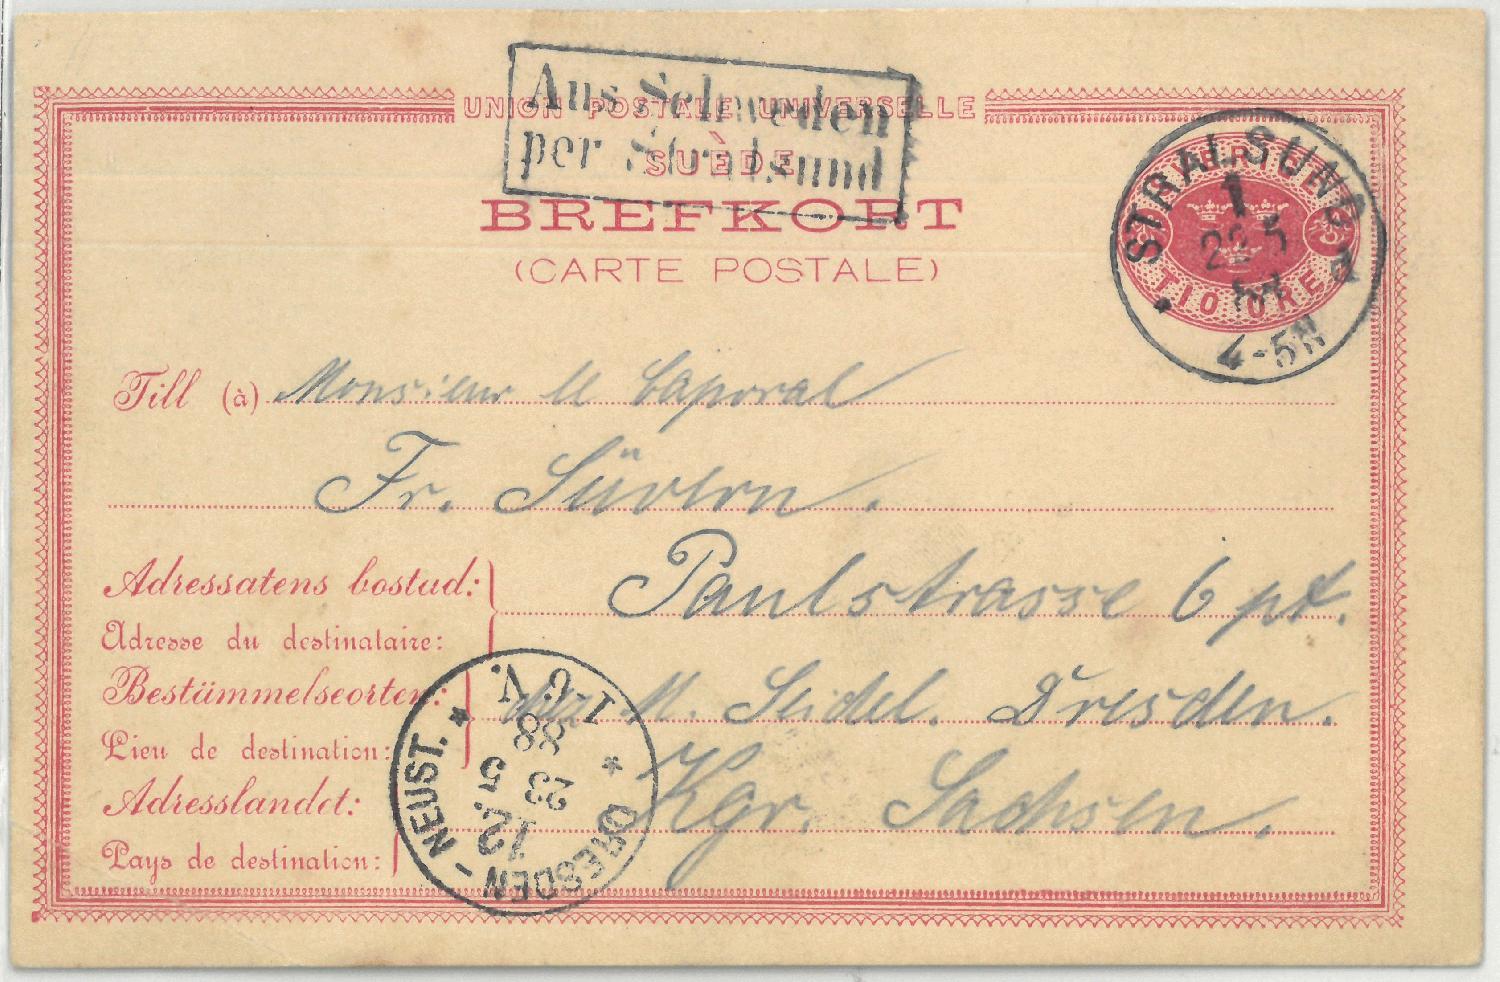 Aus Schweden
per Stralsund
UNION POSTALE UNIVERSELLE
SUÈDE
BREFKORT
(CARTE POSTALE)
SVERIGE
TIO ÖRE
STRALSUND
1
22 5
88
4-5N
Till (à) Monsieur le Caporal
Fr. Süvern.
Adressatens bostad:
Paulstrasse 6 pt.
Adresse du destinataire:
Bestämmelseorten:
M. Seidel. Dresden.
Lieu de destination:
Adresslandet:
Kgr. Sachsen.
Pays de destination:
DRESDEN - NEUST.
12.
23 5
88
V.